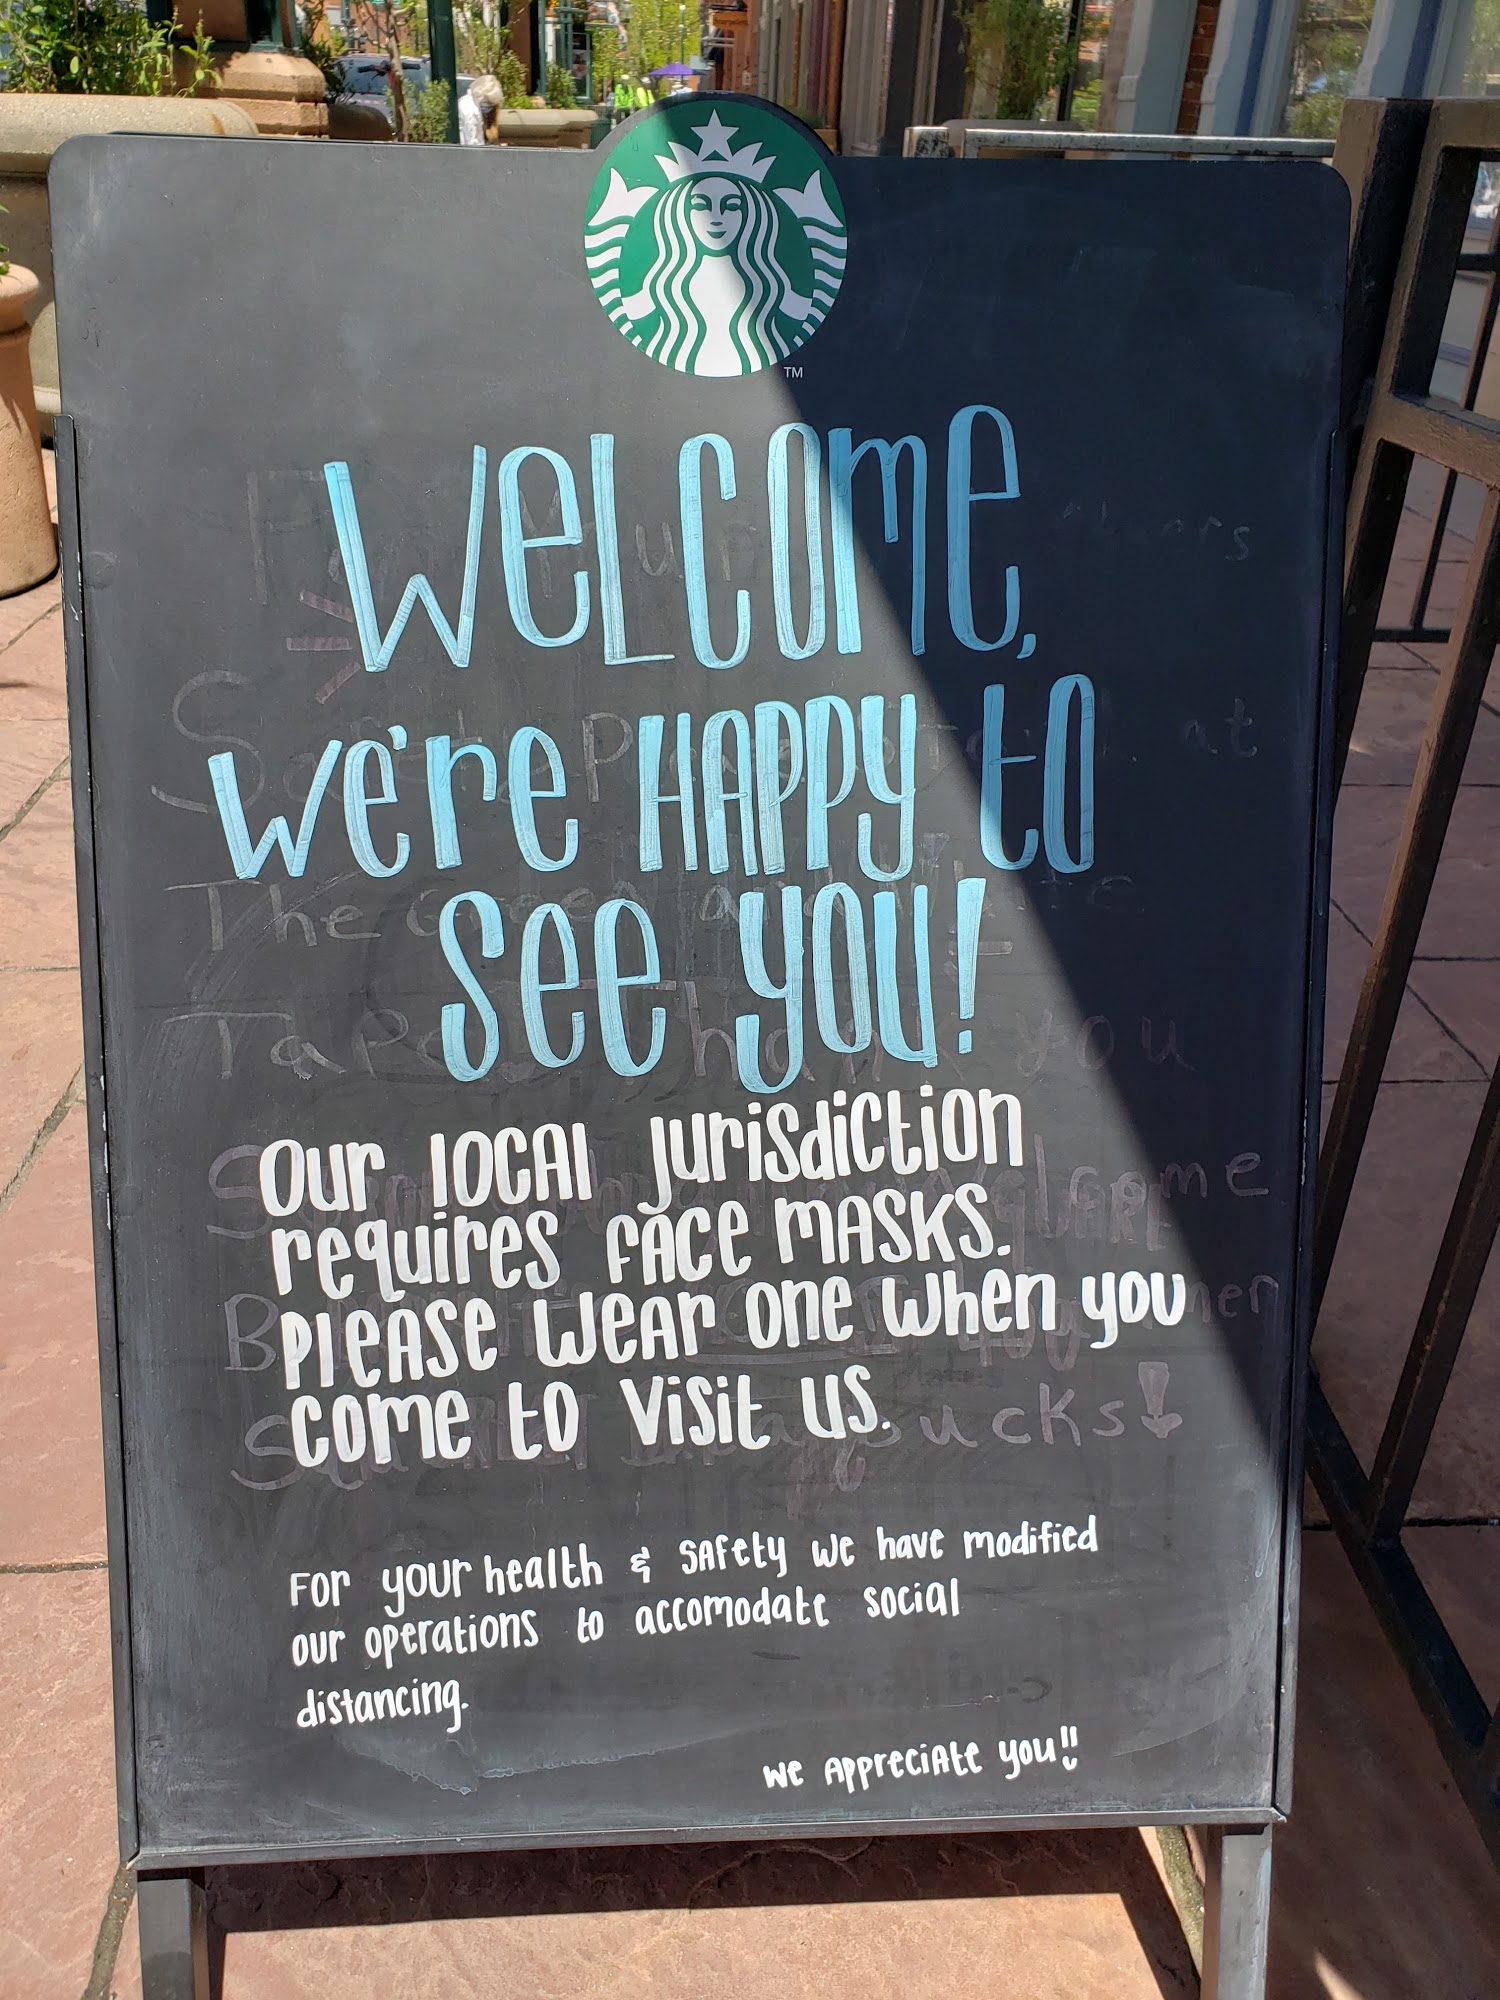 TM
Welcome,
We're HAPPY to
see you!
Our local jurisdiction
requires face masks.
Please wear one when you
come to visit us.
For your health & safety we have modified
our operations to accomodate social
distancing.
We appreciate you!!